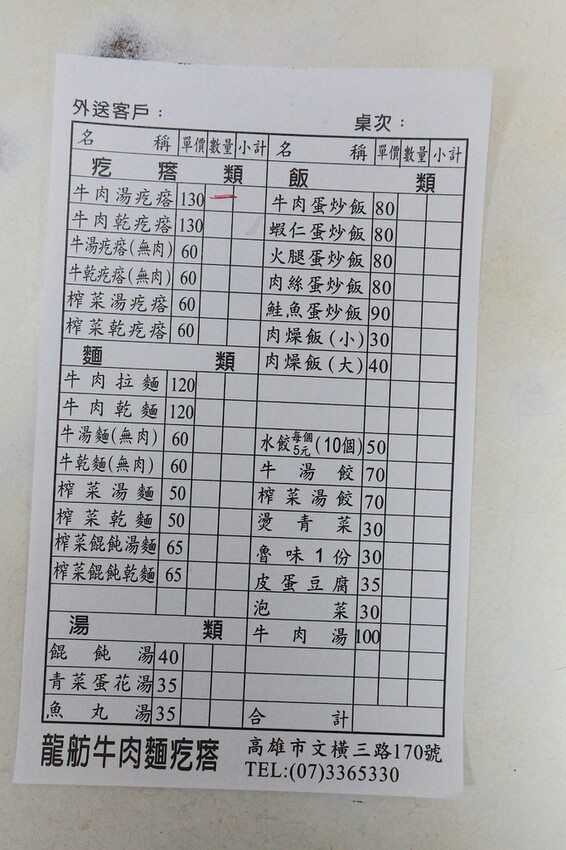 外送客戶：
桌次：
名稱 單價 數量 小計
疙瘩類
牛肉湯疙瘩 130 一
牛肉乾疙瘩 130
牛湯疙瘩(無肉) 60
牛乾疙瘩(無肉) 60
榨菜湯疙瘩 60
榨菜乾疙瘩 60
麵類
牛肉拉麵 120
牛肉乾麵 120
牛湯麵(無肉) 60
牛乾麵(無肉) 60
榨菜湯麵 50
榨菜乾麵 50
榨菜餛飩湯麵 65
榨菜餛飩乾麵 65
湯類
餛飩湯 40
青菜蛋花湯 35
魚丸湯 35
名稱 單價 數量 小計
飯類
牛肉蛋炒飯 80
蝦仁蛋炒飯 80
火腿蛋炒飯 80
肉絲蛋炒飯 80
鮭魚蛋炒飯 90
肉燥飯(小) 30
肉燥飯(大) 40
水餃每個5元(10個) 50
牛湯餃 70
榨菜湯餃 70
燙青菜 30
魯味1份 30
皮蛋豆腐 35
泡菜 30
牛肉湯 100
合計
龍舫牛肉麵疙瘩
高雄市文橫三路170號
TEL:(07)3365330